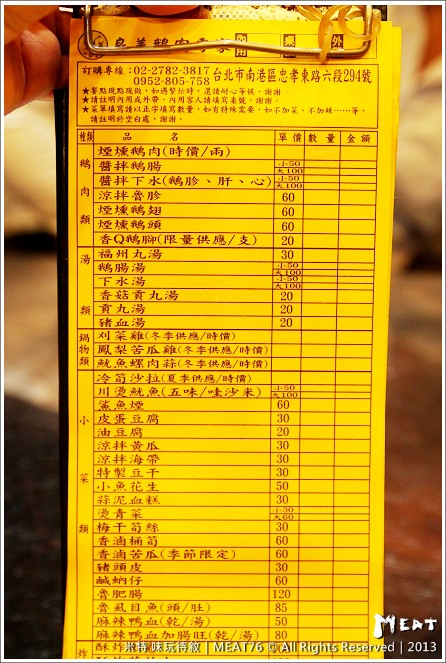 良美鵝肉專家 內用 外
訂購專線：02-2782-3817 台北市南港區忠孝東路六段294號
0952-805-758
★餐點現點現做，如遇繁忙時，還請耐心等候，謝謝
★請註明內用或外帶，內用客人請填寫桌號，謝謝。
★菜單填寫請以正字填寫數量，如有特殊需要，如不加菜、不加辣……等，
請註明於空白處，謝謝。
種類 品名 單價 數量 金額
鵝肉類
煙燻鵝肉(時價/兩)
醬拌鵝腸 小50 大100
醬拌下水(鵝胗、肝、心) 小50 大100
涼拌魯胗 60
煙燻鵝翅 60
煙燻鵝頭 60
香Q鵝腳(限量供應/支) 20
湯類
福州丸湯 30
鵝腸湯 小50 大100
下水湯 小50 大100
香菇貢丸湯 20
貢丸湯 20
豬血湯 20
鍋物類
刈菜雞(冬季供應/時價)
鳳梨苦瓜雞(冬季供應/時價)
魷魚螺肉蒜(冬季供應/時價)
小菜類
冷筍沙拉(夏季供應/時價)
川燙魷魚(五味/哇沙米) 小50 大100
鯊魚煙 60
皮蛋豆腐 30
油豆腐 20
涼拌黃瓜 30
涼拌海帶 30
特製豆干 30
小魚花生 50
蒜泥血糕 30
燙青菜 小30 大60
梅干筍絲 30
香滷桶筍 60
香滷苦瓜(季節限定) 60
豬頭皮 30
鹹蚋仔 60
魯肥腸 120
魯虱目魚(頭/肚) 85
麻辣鴨血(乾/湯) 50
麻辣鴨血加腸旺(乾/湯) 80
炸
MEAT
米特味玩待敘 | MEAT76 © All Rights Reserved | 2013